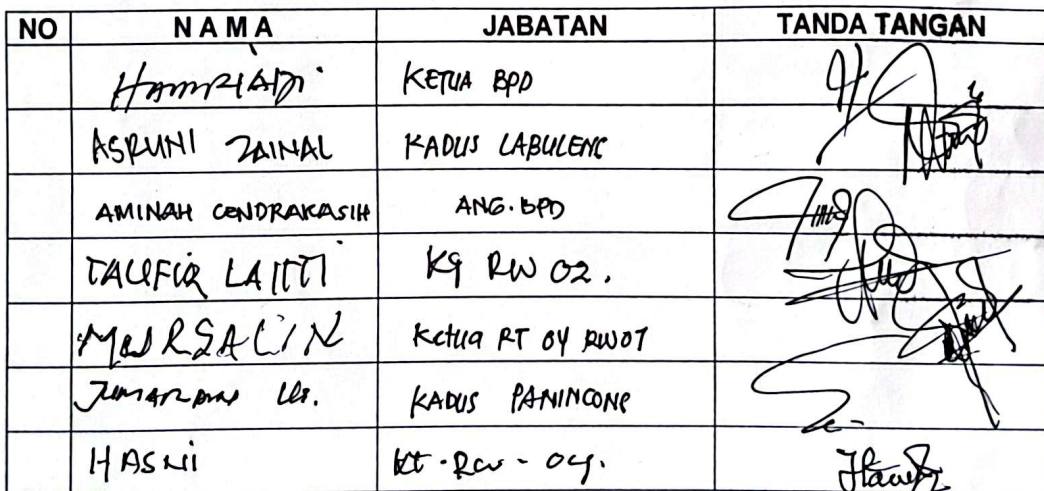 NO NAMA JABATAN TANDA TANGAN
HAMRIADI KETUA BPD
ASRUNI ZAINAL KADUS LABULENG
AMINAH CENDRAKASIH ANG. BPD
TAUFIQ LAITTI RW 02.
MURSALIN Ketua RT 04 RW 01
KADUS PANINCONG
HASNI Kt. RW - 04.